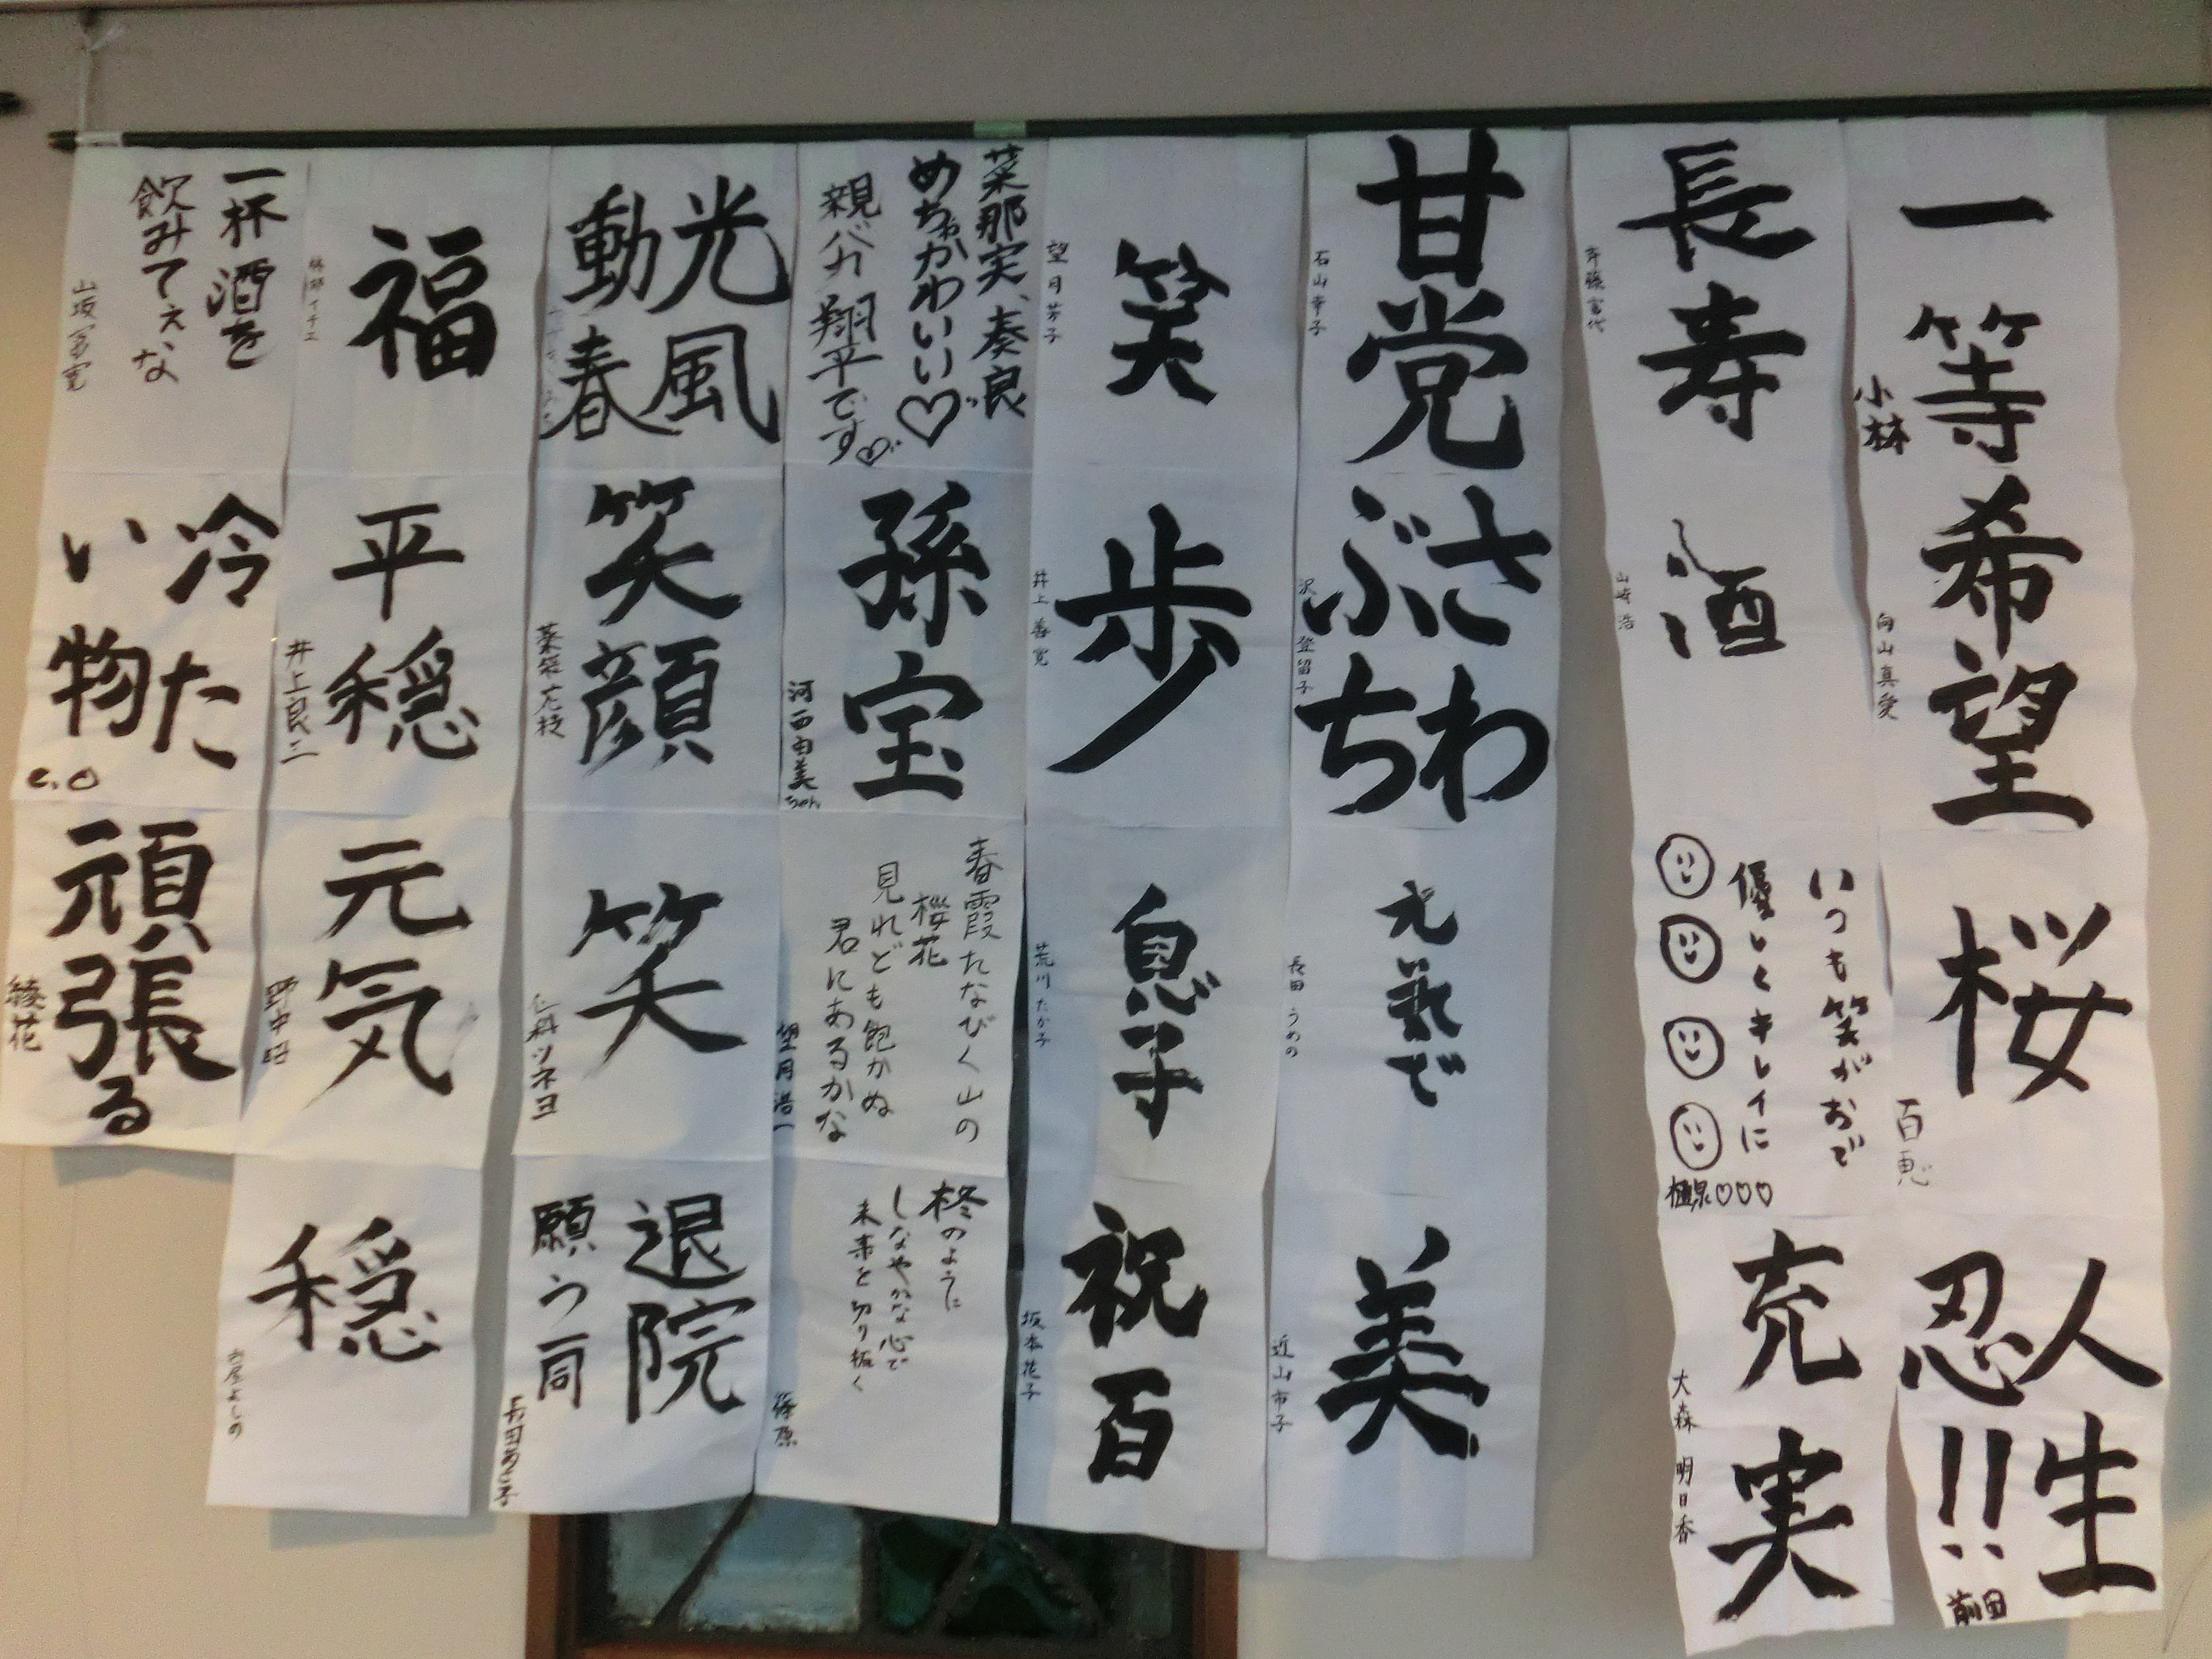 一等
小林
希望
向山真愛
桜
百恵
人生
忍!!
前田
長寿
斉藤富代
酒
山崎浩
いつも笑がおで
優しくキレイに
♡♡♡
充実
大森明日香
甘党
石山幸子
さわ
ぶち
沢登留子
元氣で
長田うめの
美
近山市子
笑
望月芳子
歩
井上善寛
息子
荒川たか子
祝百
坂本花子
菜那実、奏良
めちゃかわいい♡
親バカ翔平です♡
孫宝
河西由美ちゃん
春霞たなびく山の
桜花
見れども飽かぬ
君にあるかな
望月浩一
柊のように
しなやかな心で
未来を切り拓く
篠原
光風
動春
笑顔
笑
仁科ツネヨ
退院
願う一同
福
平穏
井上良三
元気
野中昭
穏
一杯酒を
飲みてぇな
冷た
い物
e.o
頑張る
綾花